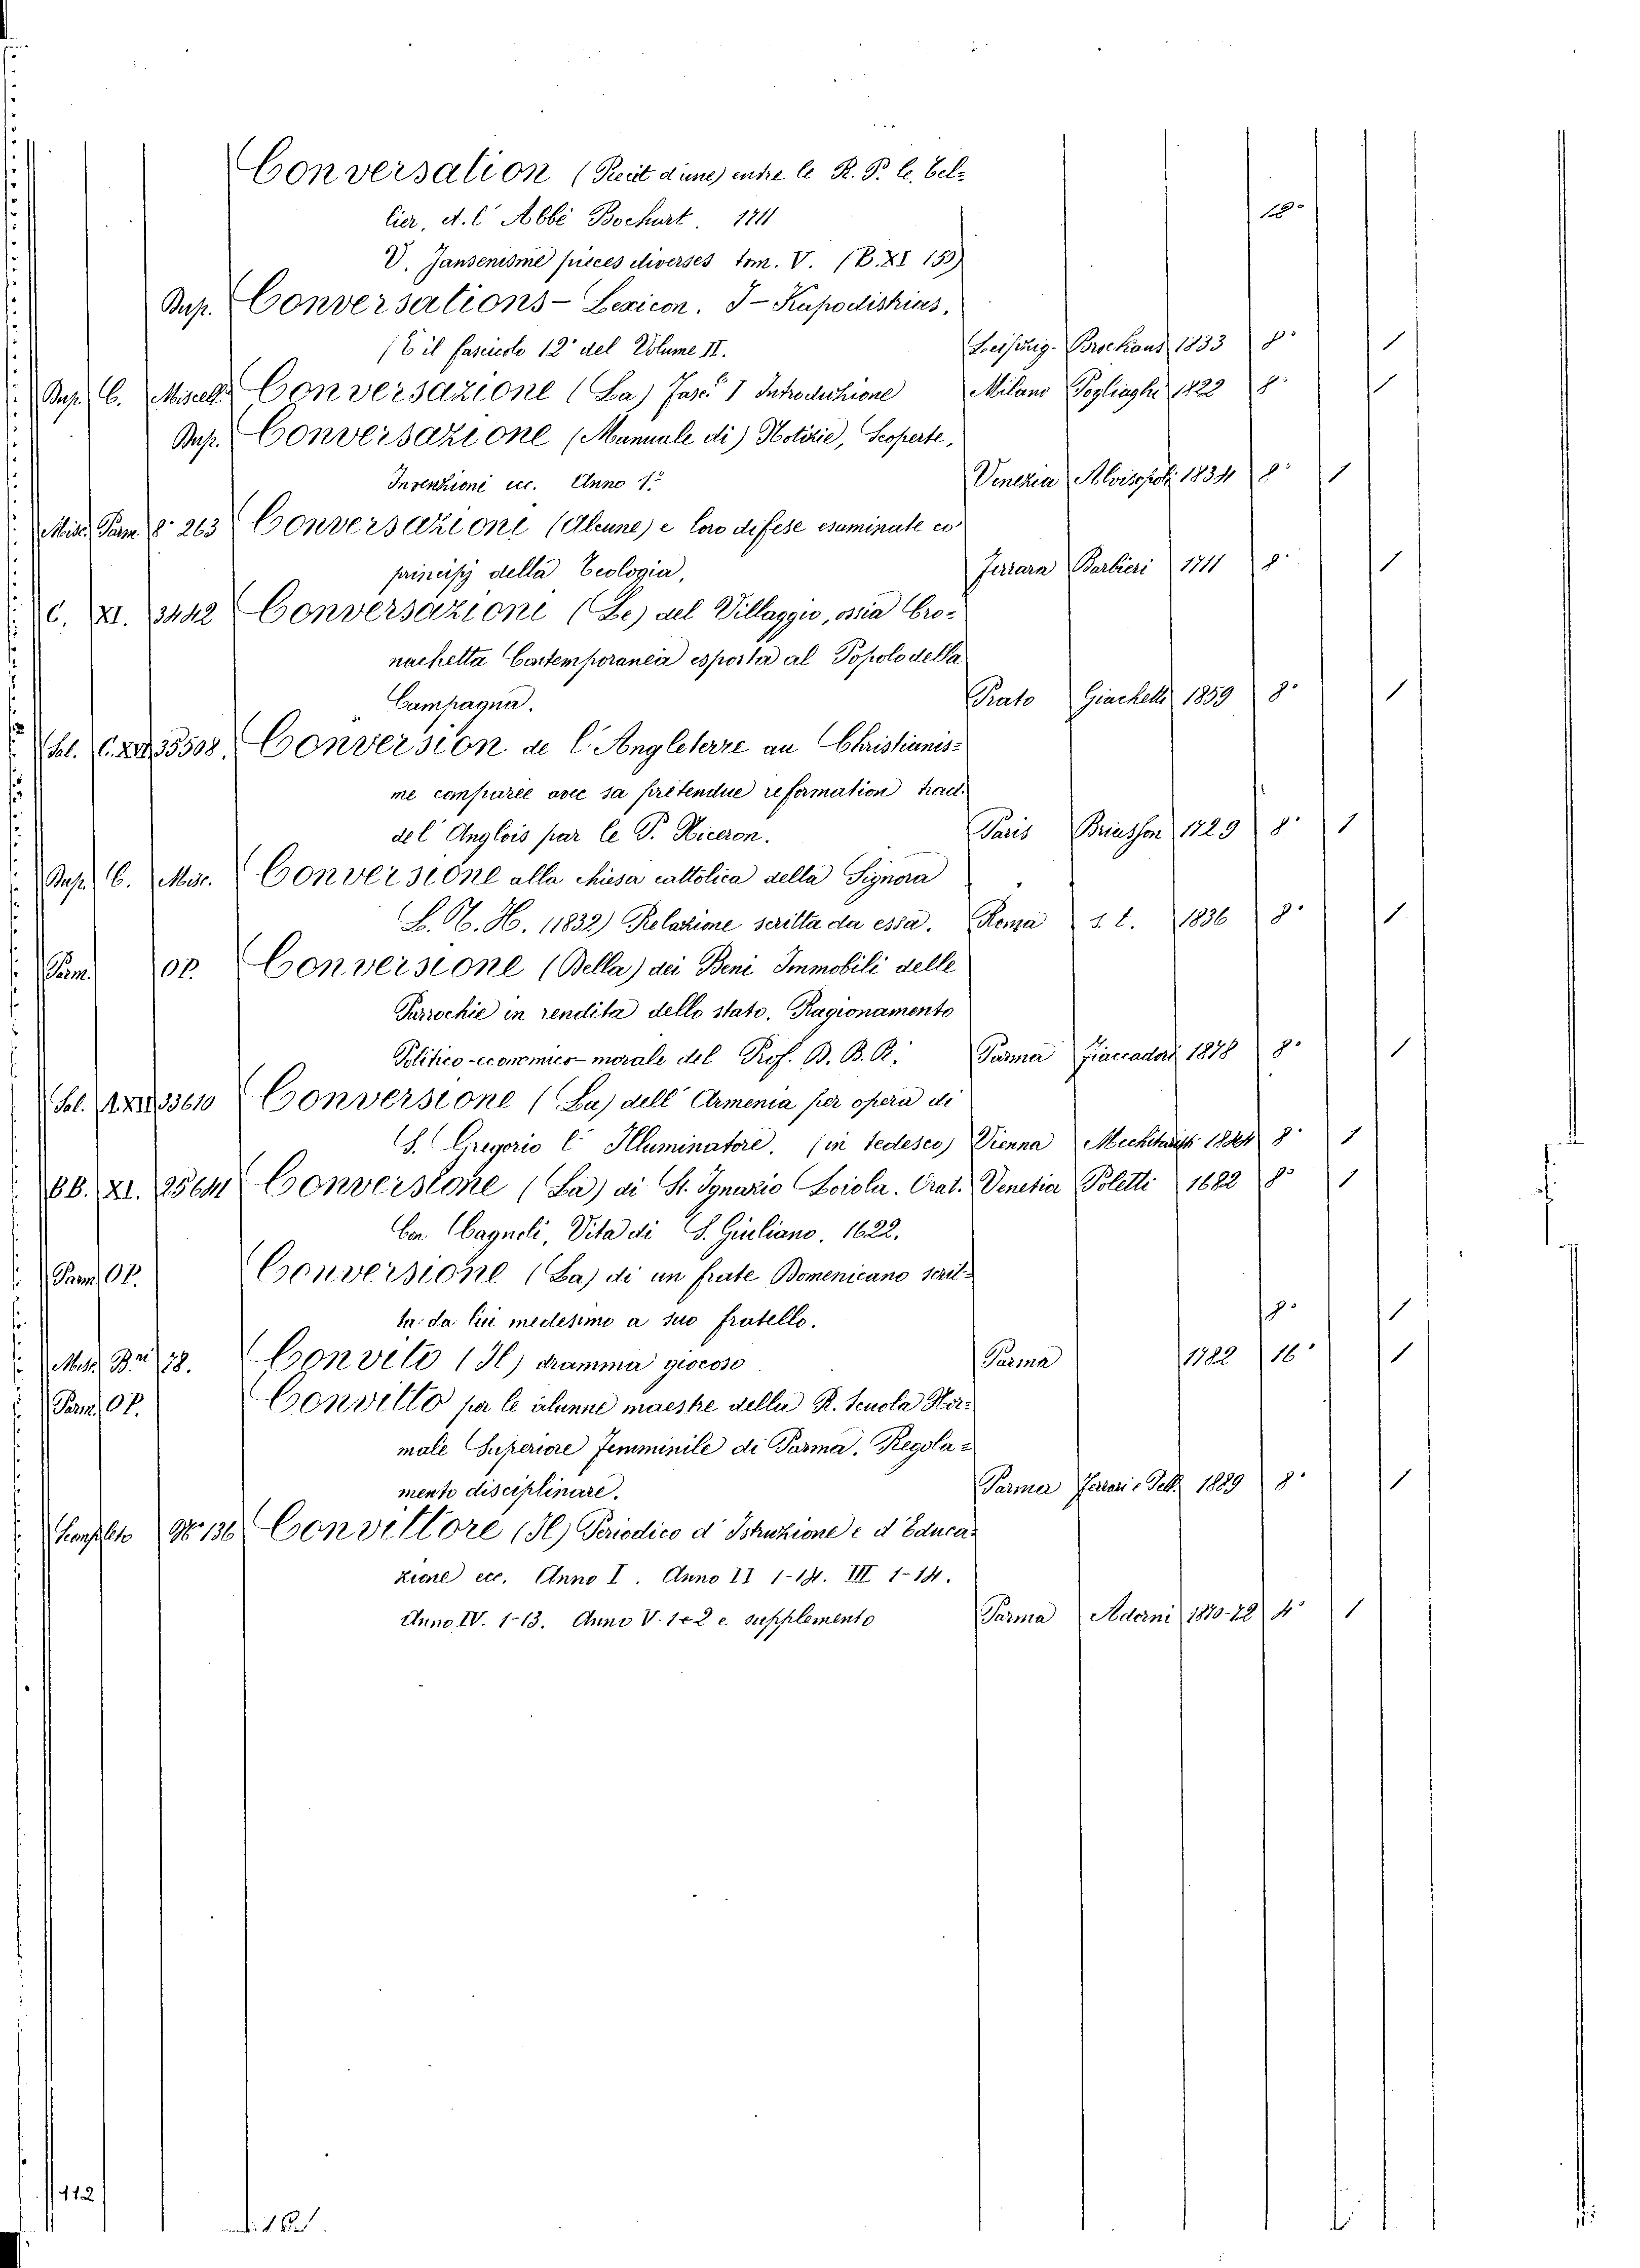 Conversation (Recit d'une) entre le R. P. le Tel-
lier, et l'Abbé Bochart. 1711 12°
V. Jansenisme pièces diverses tom. V. (B. XI 153)
Dup. Conversations-Lexicon. I-Kapodistrias.
(È il fascicolo 12° del Volume II. Leipzig. Brockaus 1833 8° 1
Dup. C. Miscell. Conversazione (La) Fasc. I Introduzione Milano Pogliaghi 1822 8° 1
Dup. Conversazione (Manuale di) Notizie, Scoperte,
Invenzioni ecc. Anno 1.° Venezia Alvisopoli 1834 8° 1
Misc. Parm. 8° 263 Conversazioni (Alcune) e loro difese esaminate co'
principj della Teologia. Ferrara Barbieri 1711 8° 1
C. XI. 3442 Conversazioni (Le) del Villaggio, ossia Cro-
nachetta Contemporanea esposta al Popolo della
Campagna. Prato Giachetti 1859 8° 1
Sal. C. XVI 35508. Conversion de l'Angleterre au Christianis-
me comparée avec sa pretendue reformation trad.
de l'Anglois par le P. Niceron. Paris Briasson 1729 8° 1
Dup. C. Misc. Conversione alla chiesa cattolica della Signora
L. N. H. (1832) Relazione scritta da essa. Roma s. t. 1836 8° 1
Parm. OP. Conversione (Della) dei Beni Immobili delle
Parrochie in rendita dello stato. Ragionamento
Politico-economico-morale del Prof. D. B. R. Parma Fiaccadori 1878 8° 1
Sal. 33610 Conversione (La) dell'Armenia per opera di
S. Gregorio l'Illuminatore. (in tedesco) Vienna Mechitaristi 1844 8° 1
BB. XI. 25641 Conversione (La) di St. Ignazio Loiola. Orat. Venetia Poletti 1682 8° 1
Con Cagnoli, Vita di S. Giuliano. 1622.
Parm. OP. Conversione (La) di un frate Domenicano scrit-
ta da lui medesimo a suo fratello. 8° 1
Misc. Bni 78. Convito (Il) dramma giocoso Parma 1782 16° 1
Parm. OP. Convitto per le alunne maestre della R. Scuola Nor-
male Superiore Femminile di Parma. Regola-
mento disciplinare. Parma Ferrari e Pell. 1889 8° 1
No 136 Convittore (Il) Periodico d'Istruzione e d'Educa-
zione ecc. Anno I. Anno II 1-14. III 1-14.
Anno IV. 1-13. Anno V. 1 e 2 e supplemento Parma Adorni 1870-72 4° 1
112